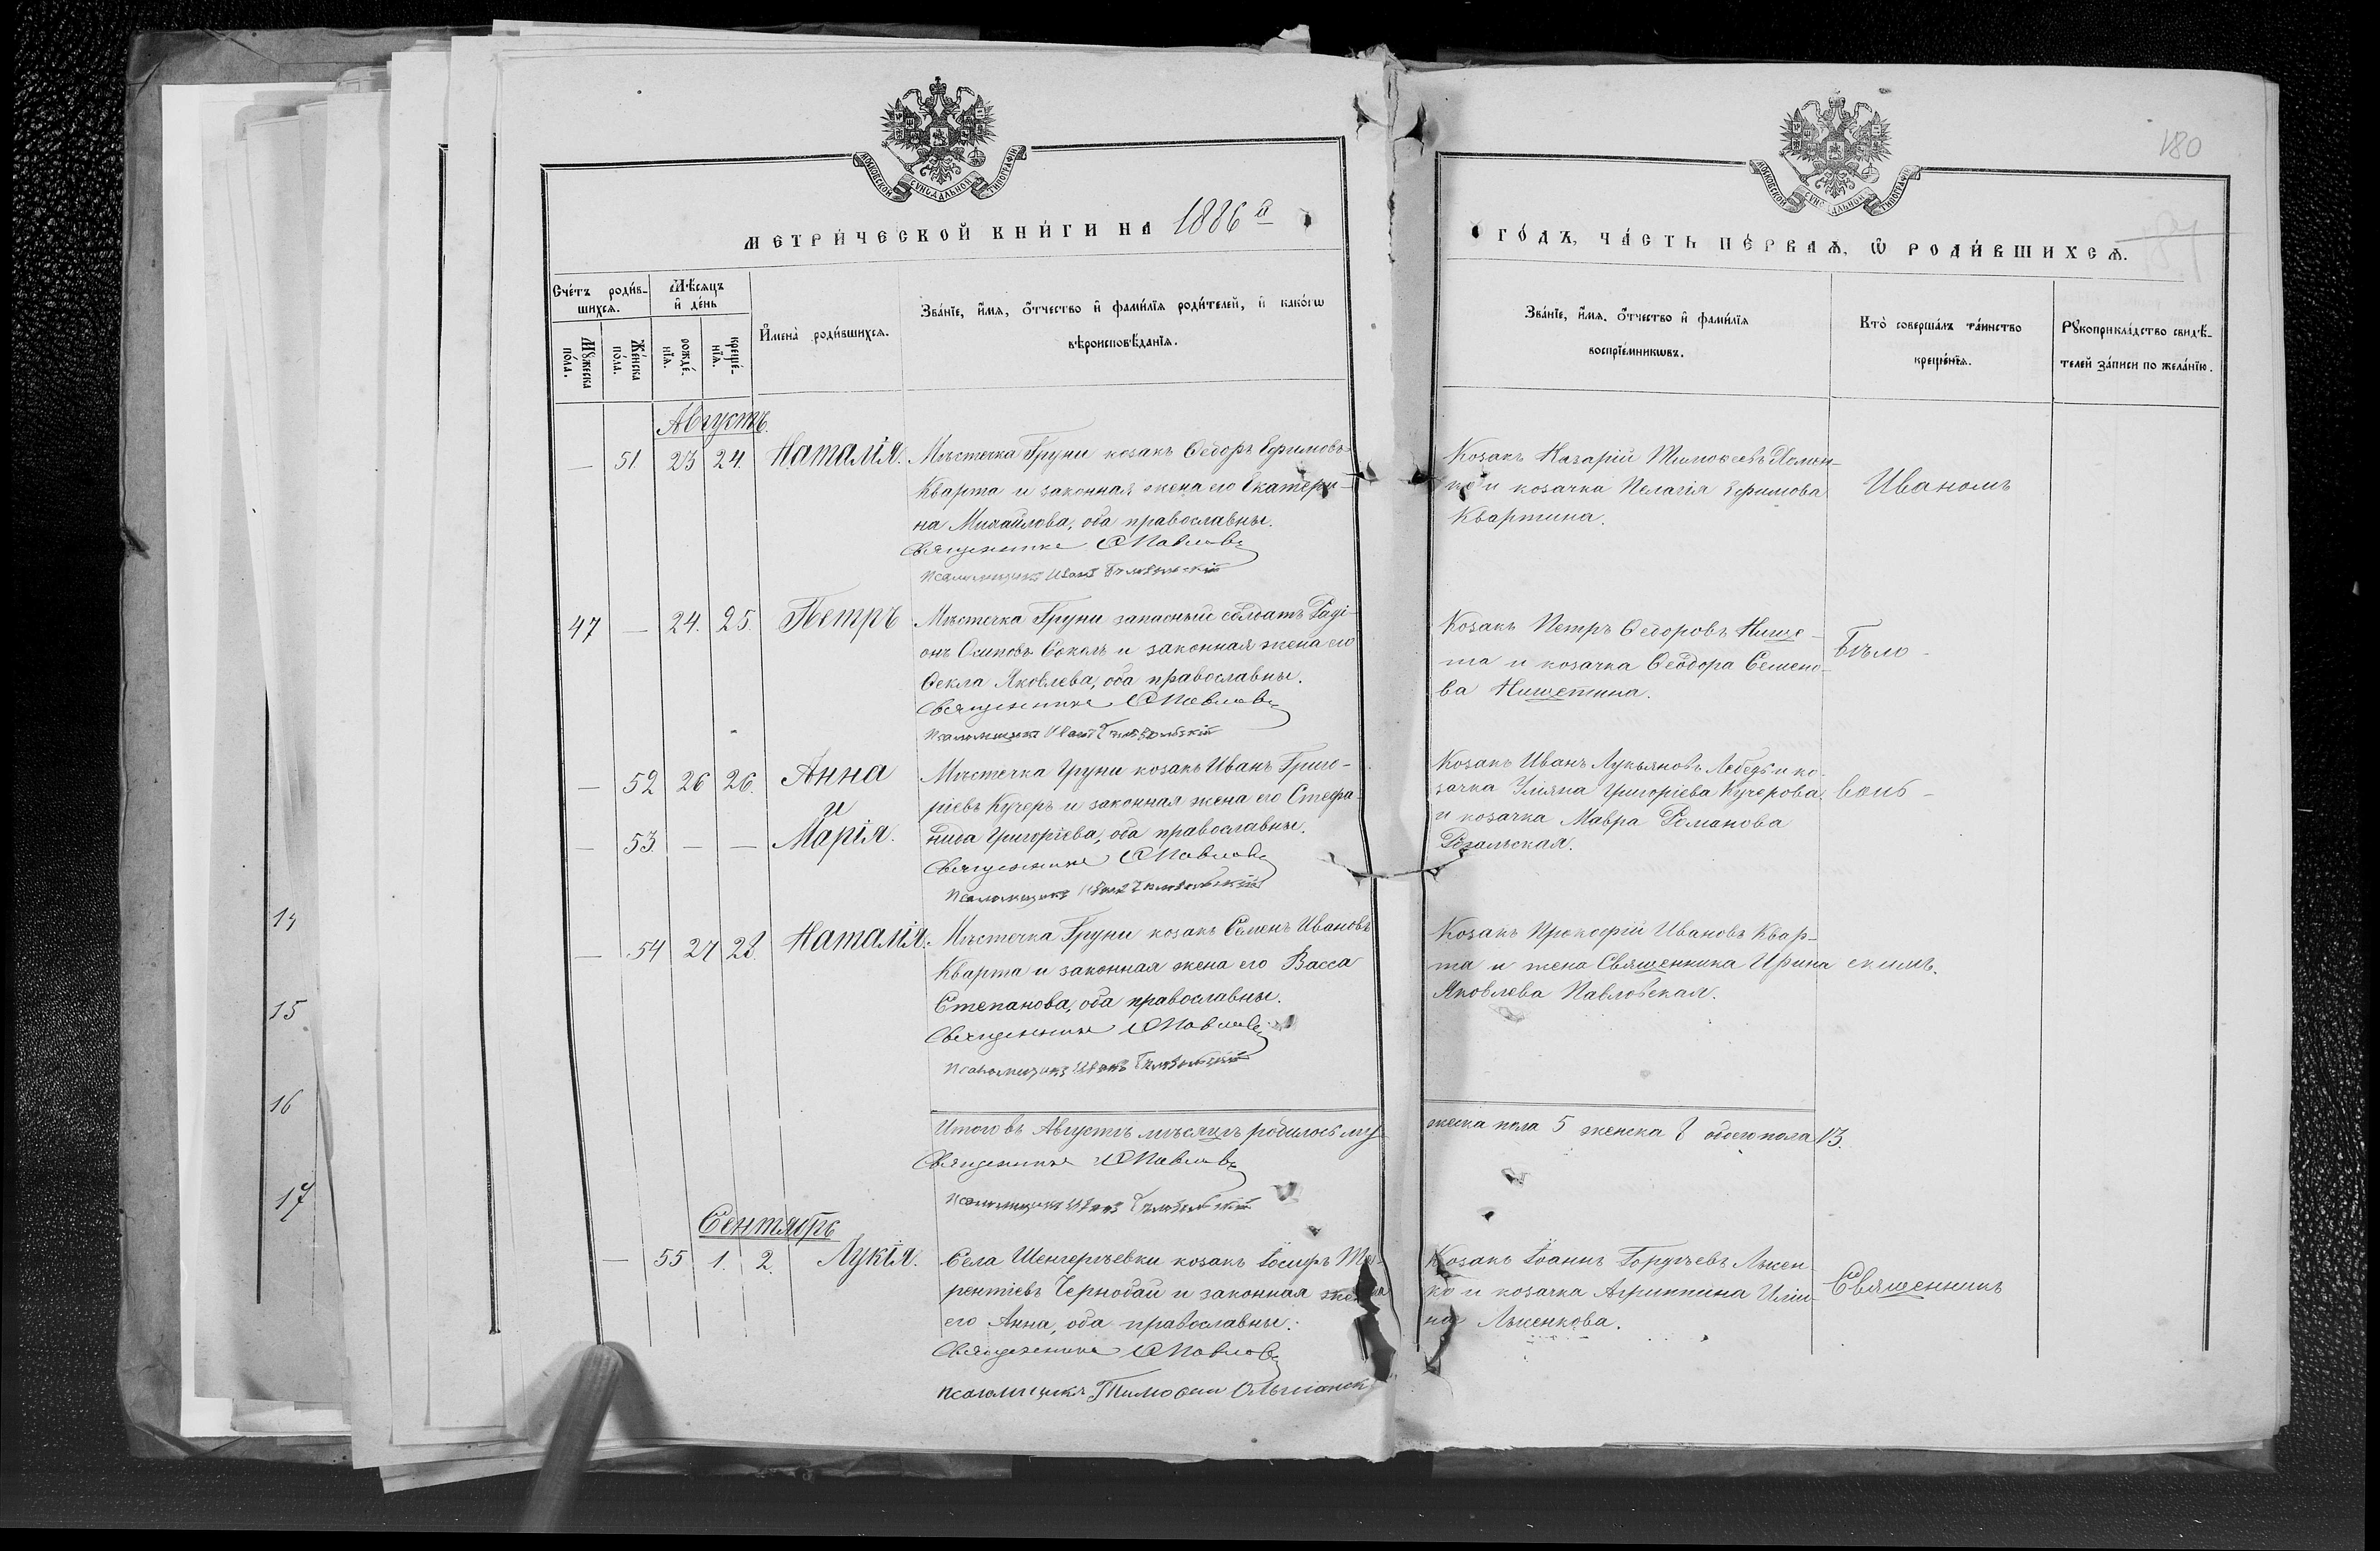 180
МОСКОВСКОЙ СѴНОДАЛЬНОЙ ТИПОГРАФІИ
МОСКОВСКОЙ СѴНОДАЛЬНОЙ ТИПОГРАФІИ
МЕТРИ́ЧЕСКОЙ КНИ́ГИ НА 1886й
ГО́ДЪ, ЧА́СТЬ ПЕ́РВАѦ, Ѡ҆ РОДИ́ВШИХСѦ.
Сче́тъ роди́в-
шихсѧ.
Мѣ́сѧцъ
и҆ де́нь
Мꙋ́жеска
по́ла.
Же́нска
по́ла.
рожде́-
нїѧ.
креще́-
нїѧ.
И҆мена̀ роди́вшихсѧ.
Зва́нїе, и҆́мѧ, ѻ҆́тчество и҆ фамі́лїѧ роди́телей, и҆ како́гѡ
вѣроисповѣ́данїѧ.
Зва́нїе, и҆́мѧ, ѻ҆́тчество и҆ фамі́лїѧ
воспрїе́мникѡвъ.
Кто̀ соверша́лъ та́инство
креще́нїѧ.
Рꙋкоприкла́дство свидѣ́-
телей за́писи по жела́нїю.
Августъ.
— 51 23 24. Наталія. Мѣстечка Груни козакъ Ѳедоръ Ефимовъ
Кварта и законная жена его Екатери-
на Михайлова, оба православны.
Священникъ
Псаломщикъ Иванъ Бѣловольскій
Козакъ Назарій Тимоѳеевъ
и козачка Пелагія Ефимова
Квартина.
Иваномъ
47 — 24. 25. Петръ Мѣстечка Груни запасный солдатъ Раді-
онъ Осиповъ Соколъ и законная жена его
Ѳекла Яковлева, оба православны.
Священникъ
Псаломщикъ Иванъ Бѣловольскій
Козакъ Петръ Ѳедоровъ Нище-
та и козачка Ѳеодора Семено-
ва Нищетина.
Бѣло-
— 52 26 26. Анна
и
— 53 — — Марія.
Мѣстечка Груни козакъ Иванъ Григо-
ріевъ Кучеръ и законная жена его Стефа-
нида Григоріева, оба православны.
Священникъ
Псаломщикъ Иванъ Бѣловольскій
Козакъ Иванъ Лукьяновъ Лебедь и ко-
зачка Уліяна Григоріева Кучерова
и козачка Мавра Романова
воль-
— 54 27 28. Наталія. Мѣстечка Груни козакъ Семенъ Ивановъ
Кварта и законная жена его Васса
Степанова, оба православны.
Священникъ
Псаломщикъ Иванъ Бѣловольскій
Козакъ Прокофій Ивановъ Квар-
та и жена Священника Ирина
Яковлева Павловская.
скимъ.
Итого въ Августѣ мѣсяцѣ родилось му-
жеска пола 5 женска 8 обоего пола 13.
Священникъ
Псаломщикъ Иванъ Бѣловольскій
Сентябрь
— 55 1. 2. Лукія. Села Шенгерѣевки козакъ Іосифъ Те-
рентіевъ Чернобай и законная жена
его Анна, оба православны.
Священникъ
Псаломщикъ Тимоѳей Ольшанск
Козакъ Іоаннъ Лысен-
ко и козачка Агриппина
на Лысенкова.
Священникъ
14
15
16
17